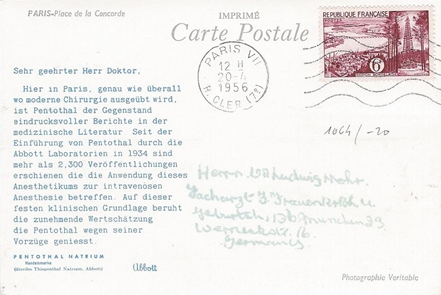 PARIS-Place de la Concorde
IMPRIMÉ
Carte Postale
PARIS VII
12 H
20-7
1956
R. CLER (7e)
RÉPUBLIQUE FRANÇAISE
6F
Sehr geehrter Herr Doktor,
Hier in Paris, genau wie überall
wo moderne Chirurgie ausgeübt wird,
ist Pentothal der Gegenstand
eindrucksvoller Berichte in der
medizinische Literatur Seit der
Einführung von Pentothal durch die
Abbott Laboratorien in 1934 sind
mehr als 2,300 Veröffentlichungen
erschienen die die Anwendung dieses
Anesthetikums zur intravenösen
Anesthesie betreffen. Auf dieser
festen klinischen Grundlage beruht
die zunehmende Wertschätzung
die Pentothal wegen seiner
Vorzüge geniesst.
PENTOTHAL NATRIUM
Handelsmarke
(Steriles Thiopenthal Natrium, Abbott)
Abbott
1064/-20
Herrn Ludwig Mohr
Facharzt f. Frauenkrkh. u.
Geburtsh, 13b München 23
Germany
Photographie Veritable